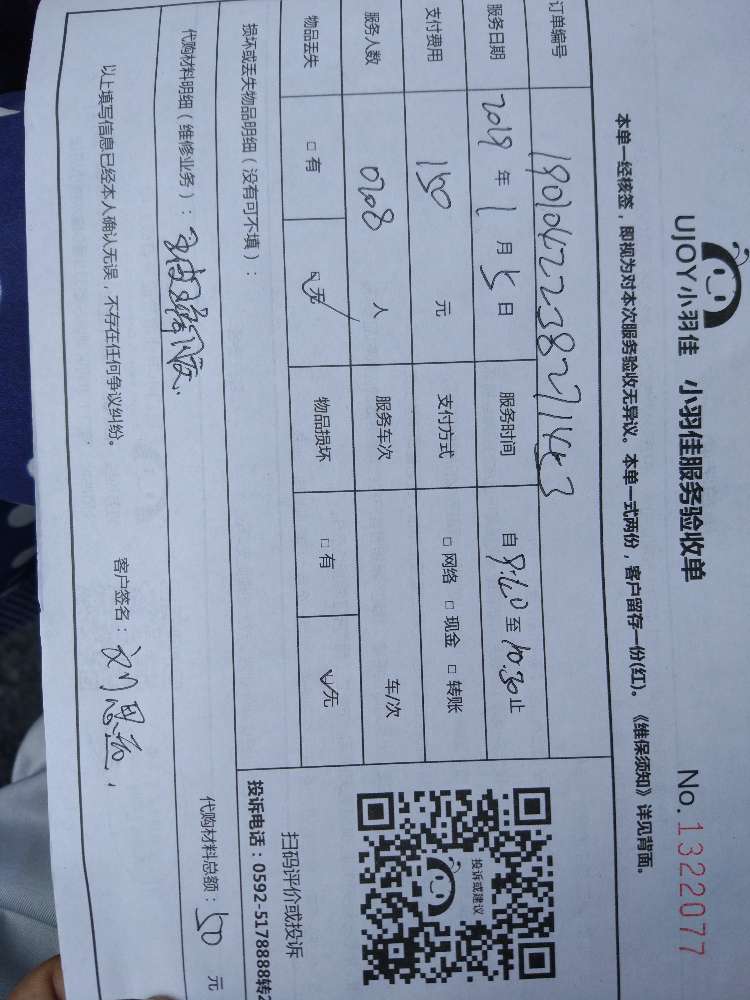 UJOY小羽佳 小羽佳服务验收单 No.1322077
本单一经核签，即视为对本次服务验收无异议。本单一式两份，客户留存一份(红)。《维保须知》详见背面。
订单编号
服务日期 2019 年 1 月 5 日 服务时间 自 9:20 至 10:30 止
支付费用 150 元 支付方式 □ 网络 □ 现金 □ 转账
服务人数 0208 人 服务车次 车/次
物品丢失 □ 有 □ 无 物品损坏 □ 有 □ 无
损坏或丢失物品明细（没有可不填）：
投诉或建议
扫码评价或投诉
投诉电话：0592-5178888转2
代购材料明细（维修业务）： 代购材料总额： 50 元
以上填写信息已经本人确认无误，不存在任何争议纠纷。 客户签名：